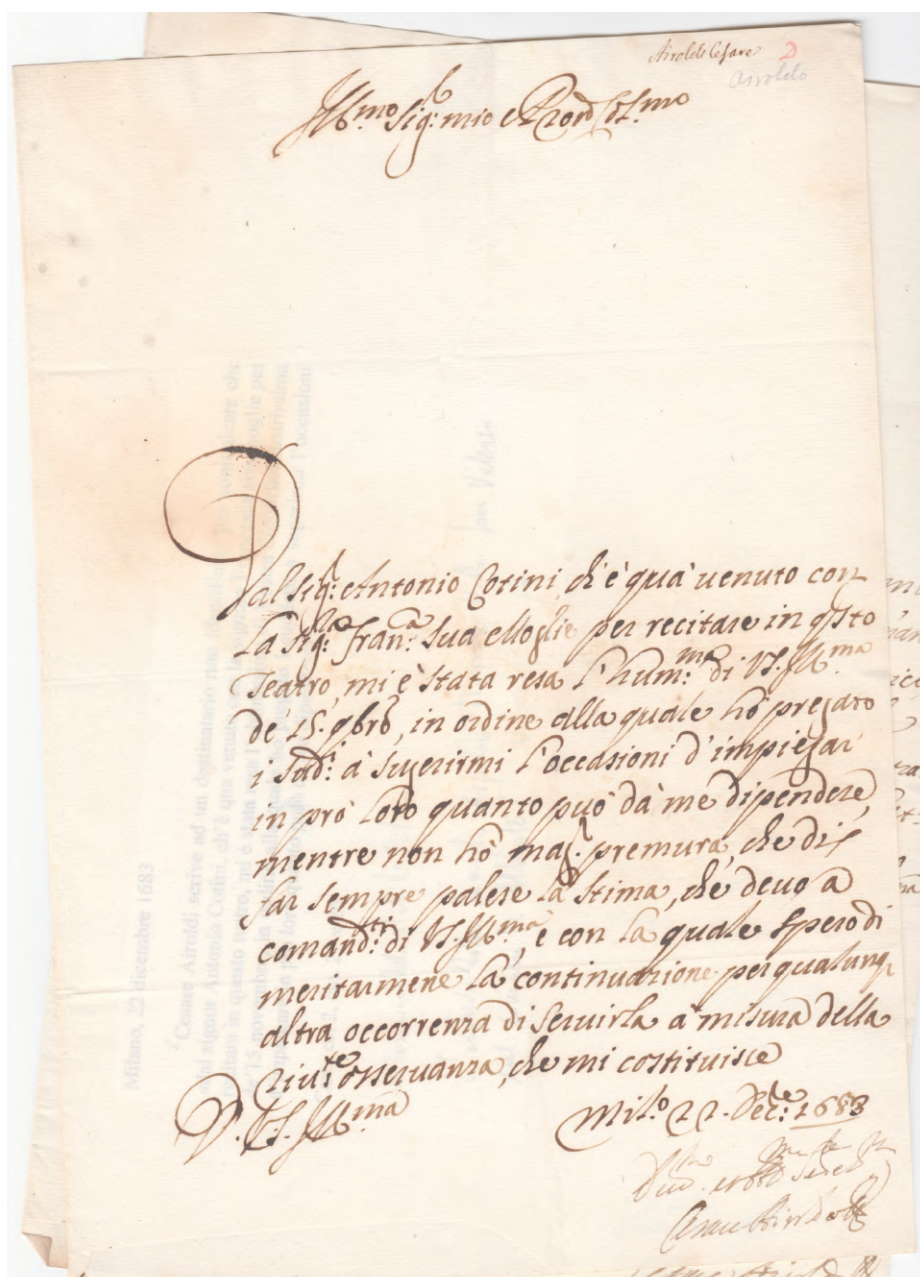 Airoldi Cesare
Airoldo
Ill.mo Sig.r mio e Pron Col.mo
Dal Sig.r Antonio Cotini, ch'è quà uenuto con
la Sig.ra Fran.ca sua Moglie per recitare in q.sto
Teatro, mi è stata resa l'hum.ma di V.S. Ill.ma
de' 15. 9bre, in ordine alla quale hò pregato
i sud.i à sugerirmi l'occasioni d'impiegar
in prò loro quanto può dà me dipendere,
mentre non hò mag.r premura, che di
far sempre palese la stima, che deuo a
comand.ti di V.S. Ill.ma, e con la quale spero di
meritarmene la continuazione per qualunq
altra occorrenza di seruirla à misura della
riu.te osseruanza, che mi costituisce
D. V.S. Ill.ma
Mil.o 22. Dec.e 1683
Milano, 22 dicembre 1683
Cesare Airoldi scrive ad un